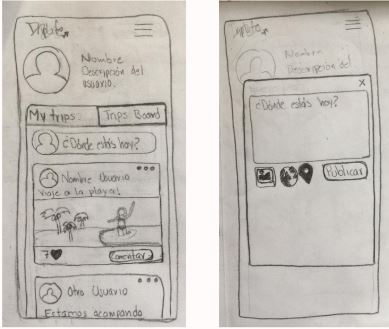 Nombre
Descripción del
usuario.
My trips
Trips Board
¿Dónde estás hoy?
Nombre Usuario
Viaje a la playa!
7
Comentar
Otro Usuario
Estamos acampando
Nombre
Descripción del
¿Dónde estás hoy?
X
Publicar